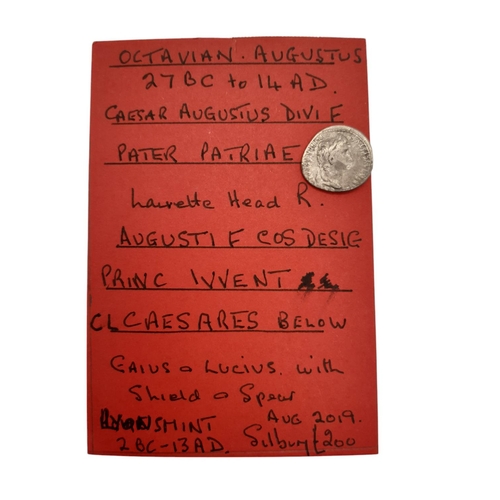 OCTAVIAN. AUGUSTUS
27BC to 14 AD.
CAESAR AUGUSTUS DIVI F
PATER PATRIAE
Laurette Head R.
AUGUSTI F COS DESIG
PRINC IVVENT
CLCAESARES BELOW
GAIUS & LUCIUS. with
Shield & Spear
MINT AUG 2019.
2 BC-13AD. Silbury £200